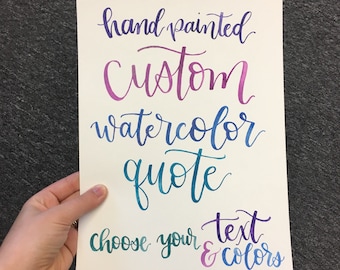 hand painted
custom
watercolor
quote
choose your text
& colors